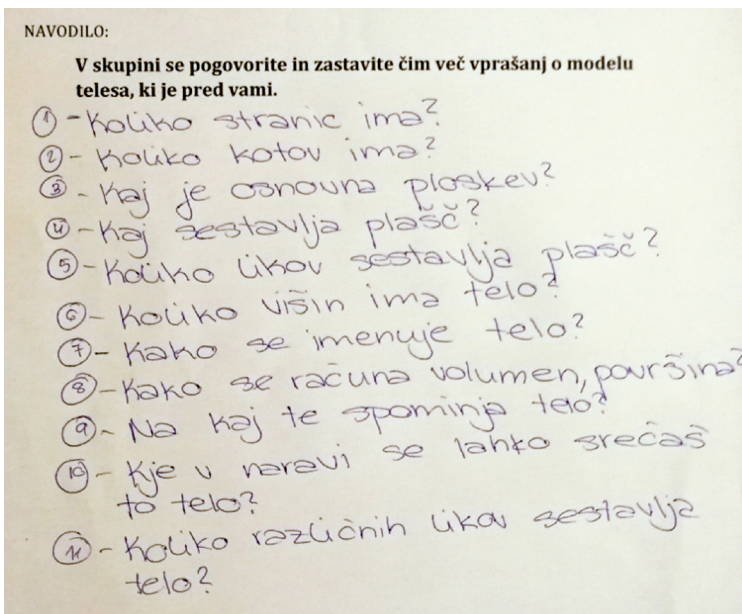 NAVODILO:
V skupini se pogovorite in zastavite čim več vprašanj o modelu
telesa, ki je pred vami.
① - Koliko stranic ima?
② - Koliko kotov ima?
③ - Kaj je osnovna ploskev?
④ - Kaj sestavlja plašč?
⑤ - Koliko likov sestavlja plašč?
⑥ - Koliko višin ima telo?
⑦ - Kako se imenuje telo?
⑧ - Kako se računa volumen, površina?
⑨ - Na kaj te spominja telo?
⑩ - Kje v naravi se lahko srečaš
to telo?
⑪ - Koliko različnih likov sestavlja
telo?